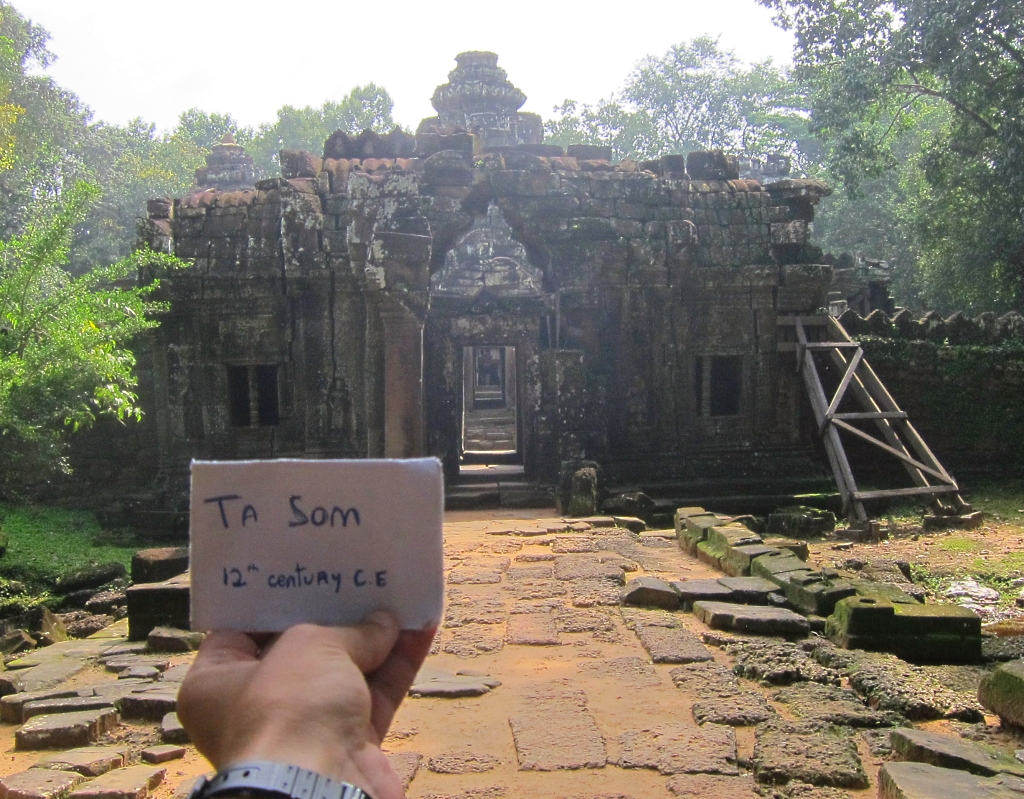 Ta Som
12th century C.E